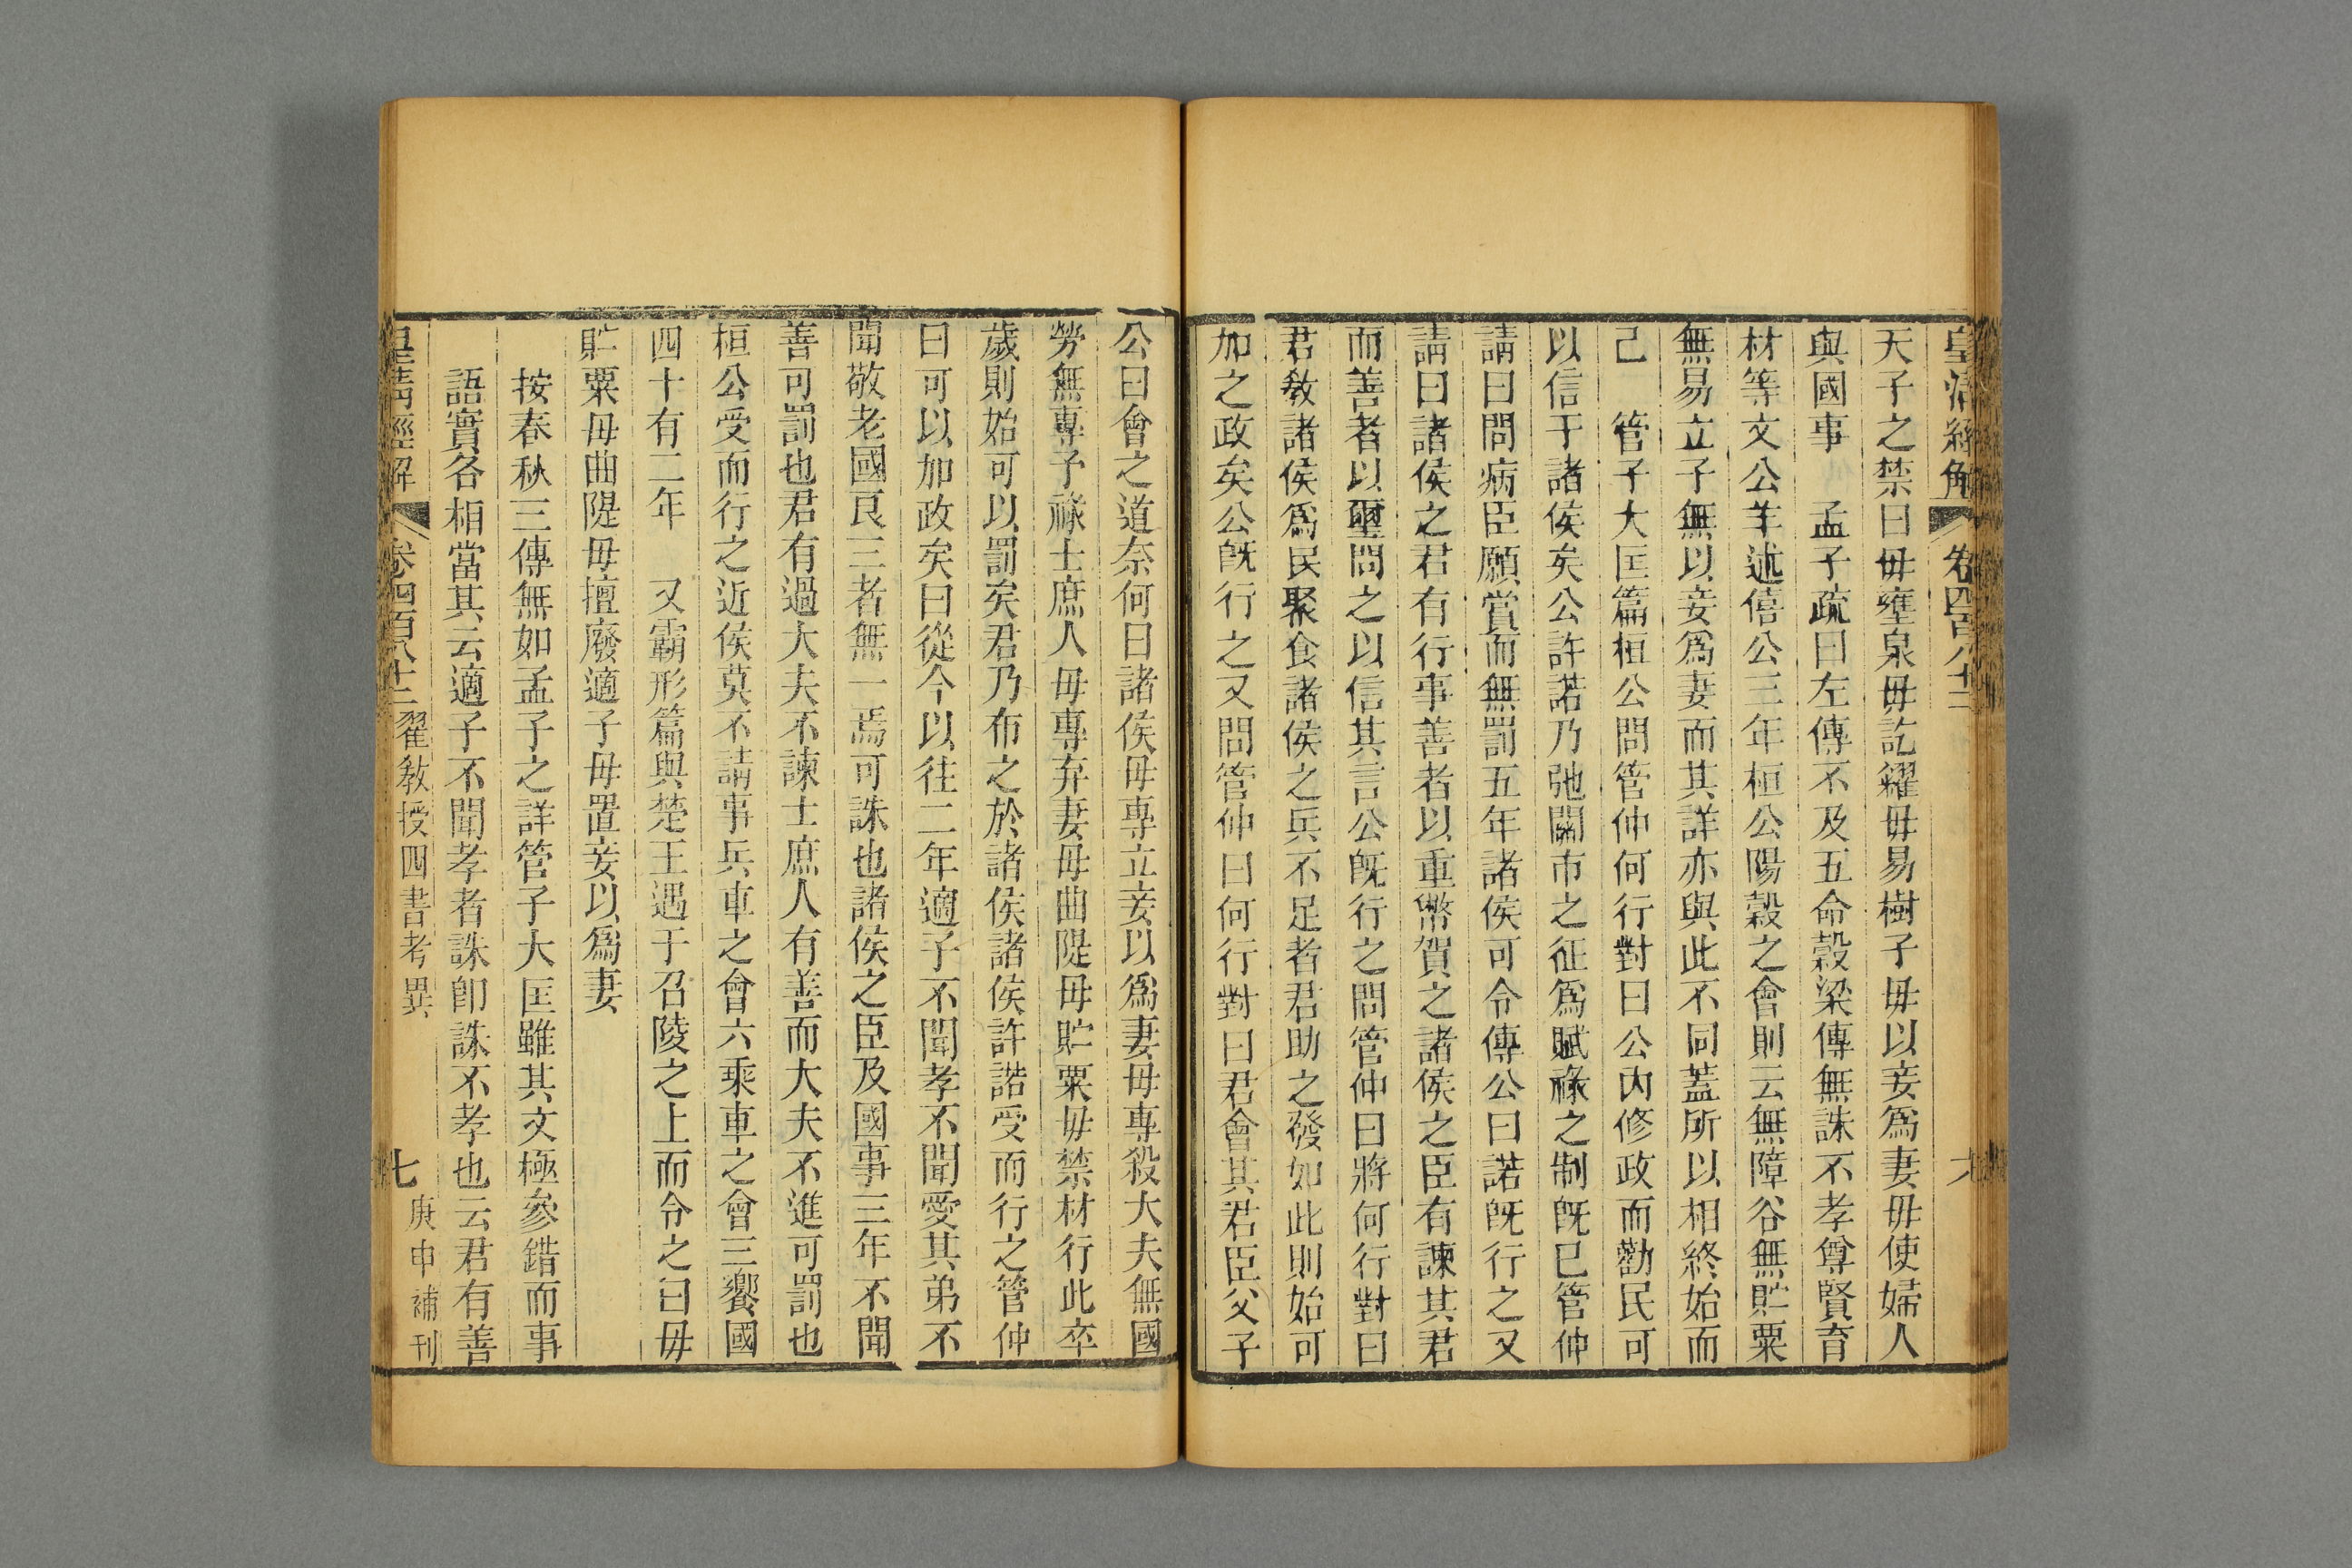 皇清經解 卷四百八十三
天子之禁曰毋壅泉毋訖糴毋易樹子毋以妾爲妻毋使婦人
與國事 孟子疏曰左傳不及五命穀梁傳無誅不孝尊賢育
材等文公羊述僖公三年桓公陽穀之會則云無障谷無貯粟
無易立子無以妾爲妻而其詳亦與此不同蓋所以相終始而
已 管子大匡篇桓公問管仲何行對曰公內修政而勸民可
以信于諸侯矣公許諾乃弛關市之征爲賦祿之制既已管仲
請曰問病臣願賞而無罰五年諸侯可令傅公曰諾既行之又
請曰諸侯之君有行事善者以重幣賀之諸侯之臣有諫其君
而善者以璽問之以信其言公既行之問管仲曰將何行對曰
君敎諸侯爲民聚食諸侯之兵不足者君助之發如此則始可
加之政矣公既行之又問管仲曰何行對曰君會其君臣父子
公曰會之道奈何曰諸侯毋專立妾以爲妻毋專殺大夫無國
勞無專予祿士庶人毋專弃妻毋曲隄毋貯粟毋禁材行此卒
歲則始可以罰矣君乃布之於諸侯諸侯許諾受而行之管仲
曰可以加政矣曰從今以往二年適子不聞孝不聞愛其弟不
聞敬老國良三者無一焉可誅也諸侯之臣及國事三年不聞
善可罰也君有過大夫不諫士庶人有善而大夫不進可罰也
桓公受而行之近侯莫不請事兵車之會六乘車之會三饗國
四十有二年 又霸形篇與楚王遇于召陵之上而令之曰毋
貯粟毋曲隄毋擅廢適子毋置妾以爲妻
按春秋三傳無如孟子之詳管子大匡雖其文極參錯而事
語實各相當其云適子不聞孝者誅卽誅不孝也云君有善
皇清經解 卷四百八十三 翟敎授四書考異 七 庚申補刊